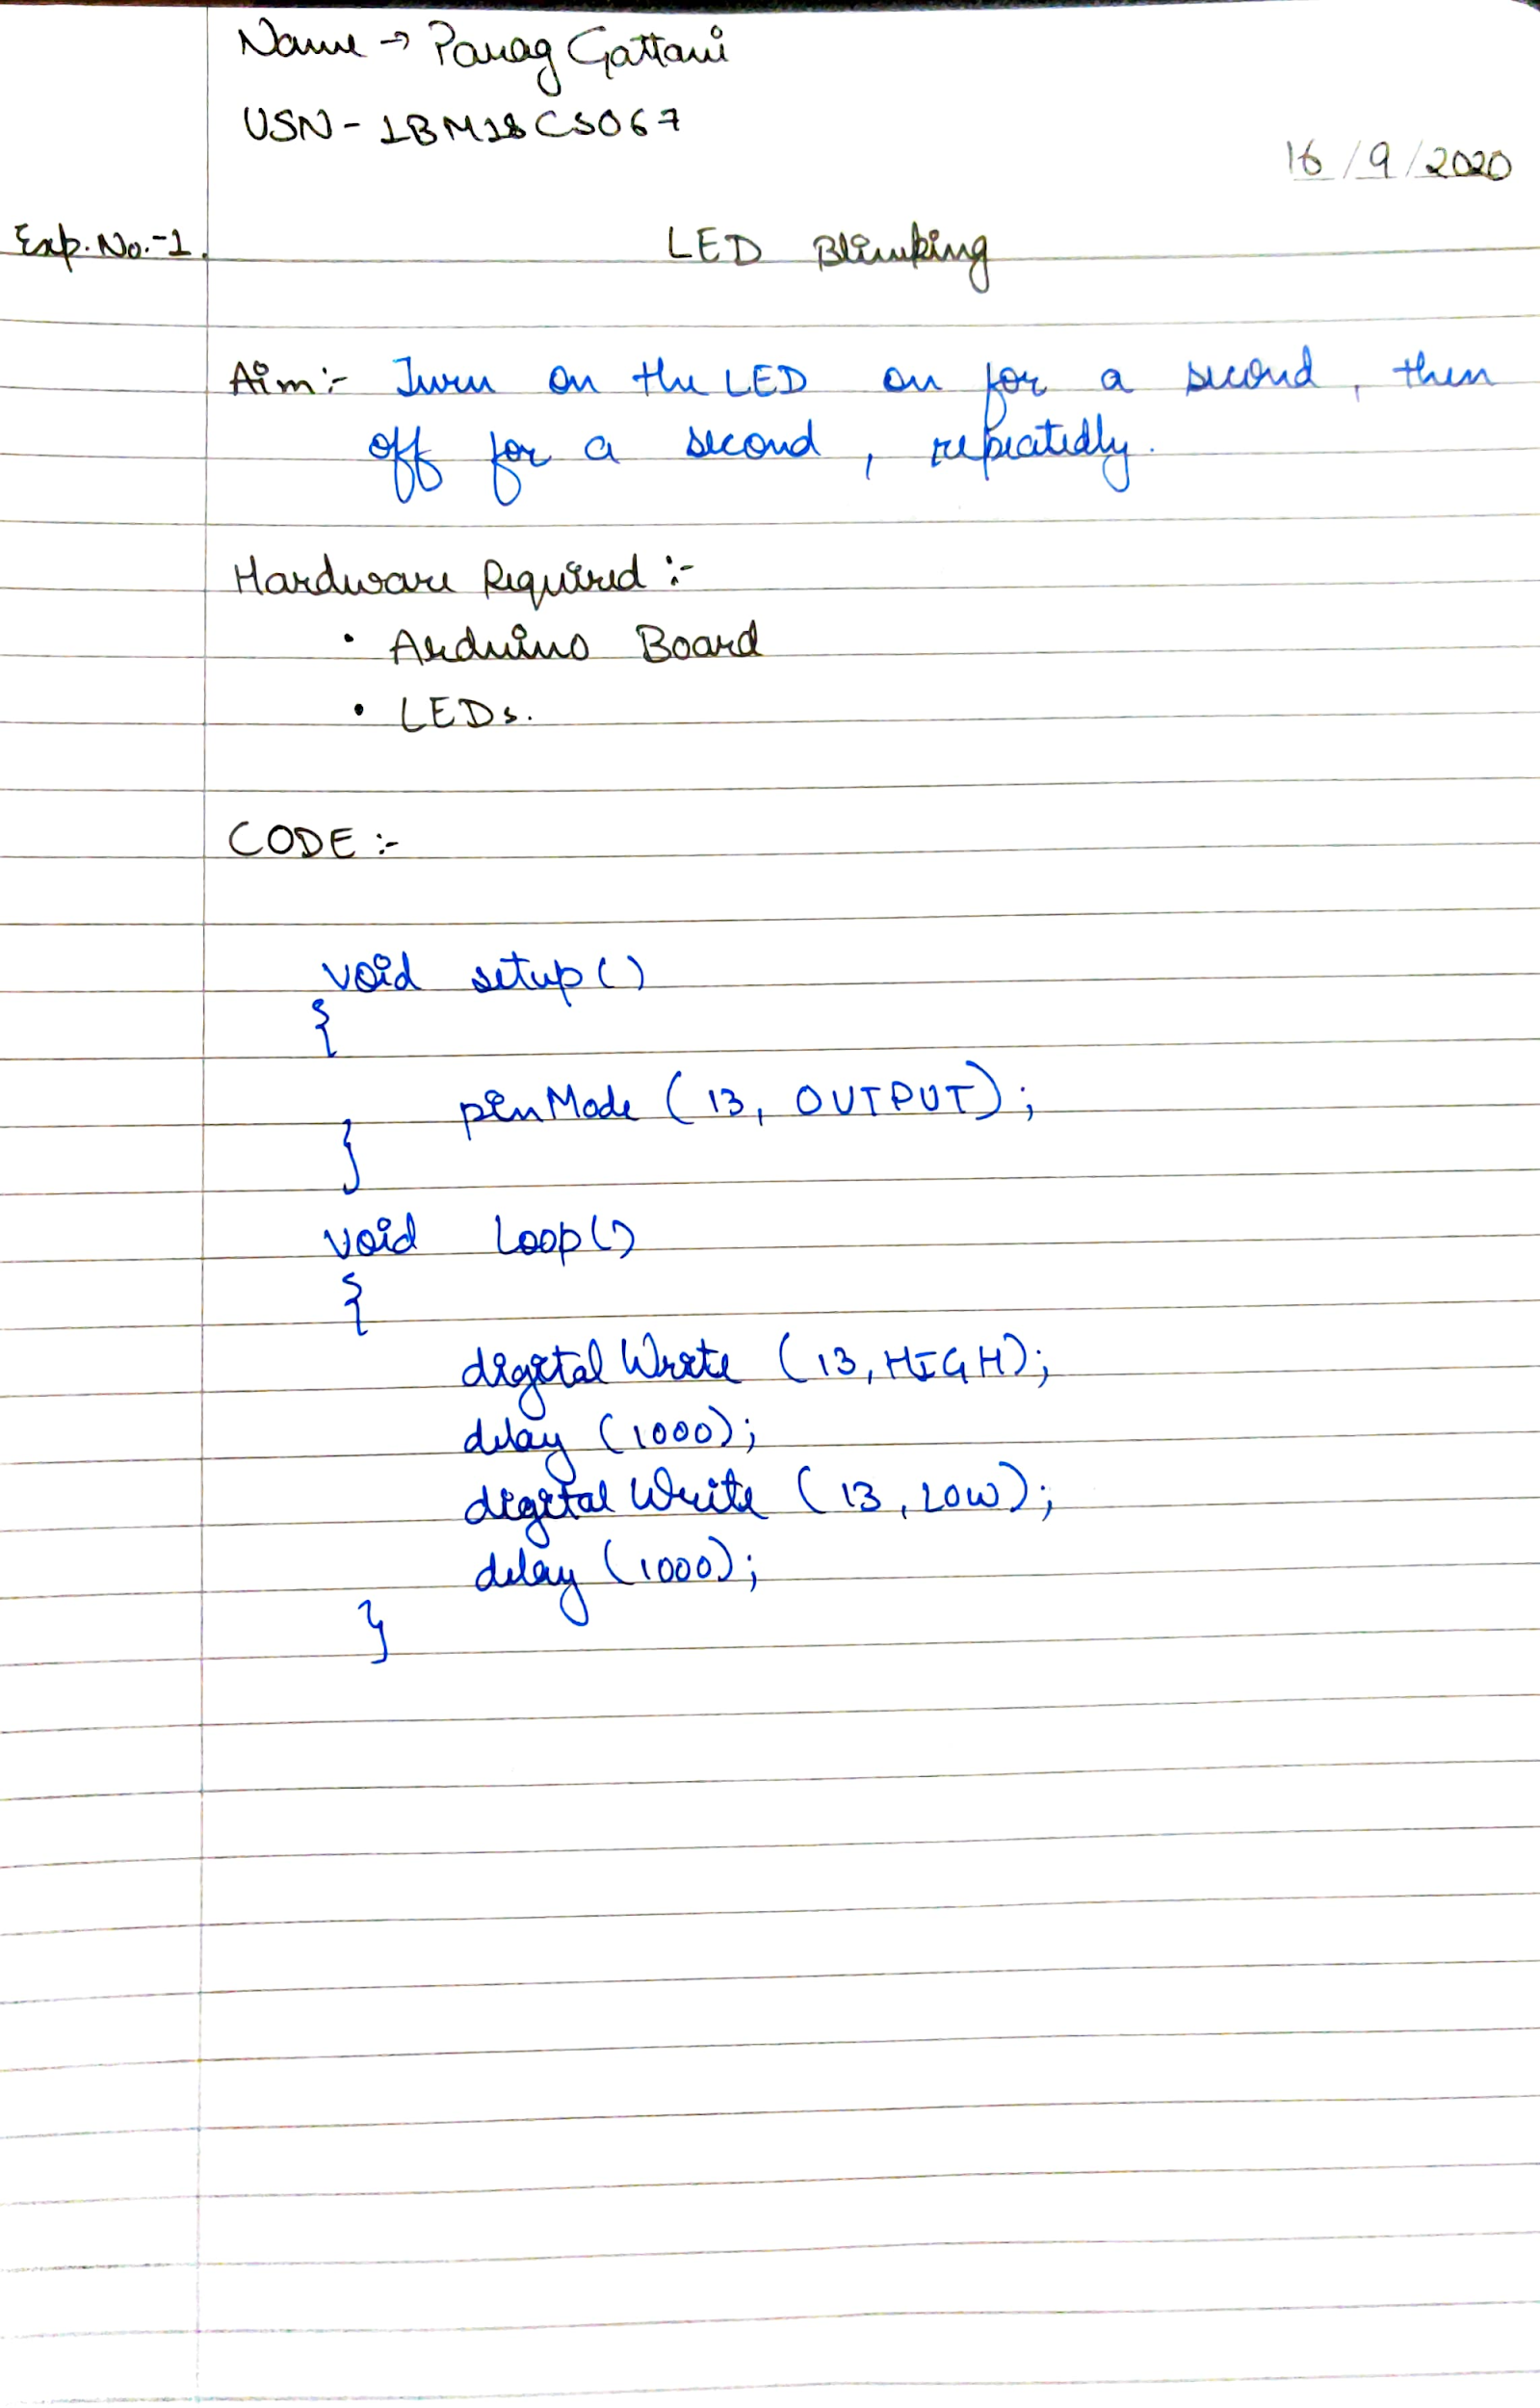 Name → Parag Gattani
USN - 1BM18CS067
16/9/2020
Exp. No.-1. LED Blinking
Aim :- Turn on the LED on for a second, then
off for a second, repeatedly.
Hardware Required :-
• Arduino Board
• LEDs.
CODE :-
void setup()
{
pinMode (13, OUTPUT);
}
void loop()
{
digitalWrite (13, HIGH);
delay (1000);
digitalWrite (13, LOW);
delay (1000);
}